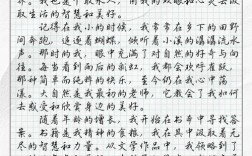 取生活的智慧和美好。
记得在我小的时候，我常常在乡下的田野
间奔跑，追逐着蝴蝶，倾听着小溪的潺潺流水
声。那时的我，眼中充满了对自然的好奇与向
往。每当看到雨后的彩虹，我都会欢呼雀跃，
那种简单而纯粹的快乐，至今仍在我心中荡
漾。大自然是我最初的老师，它教会了我如何
去感受和欣赏身边的美好。
随着年龄的增长，我开始在书本中寻找答
案。书籍是我精神的食粮，我在其中汲取着无
尽的智慧和力量。从文学作品中，我领略到了